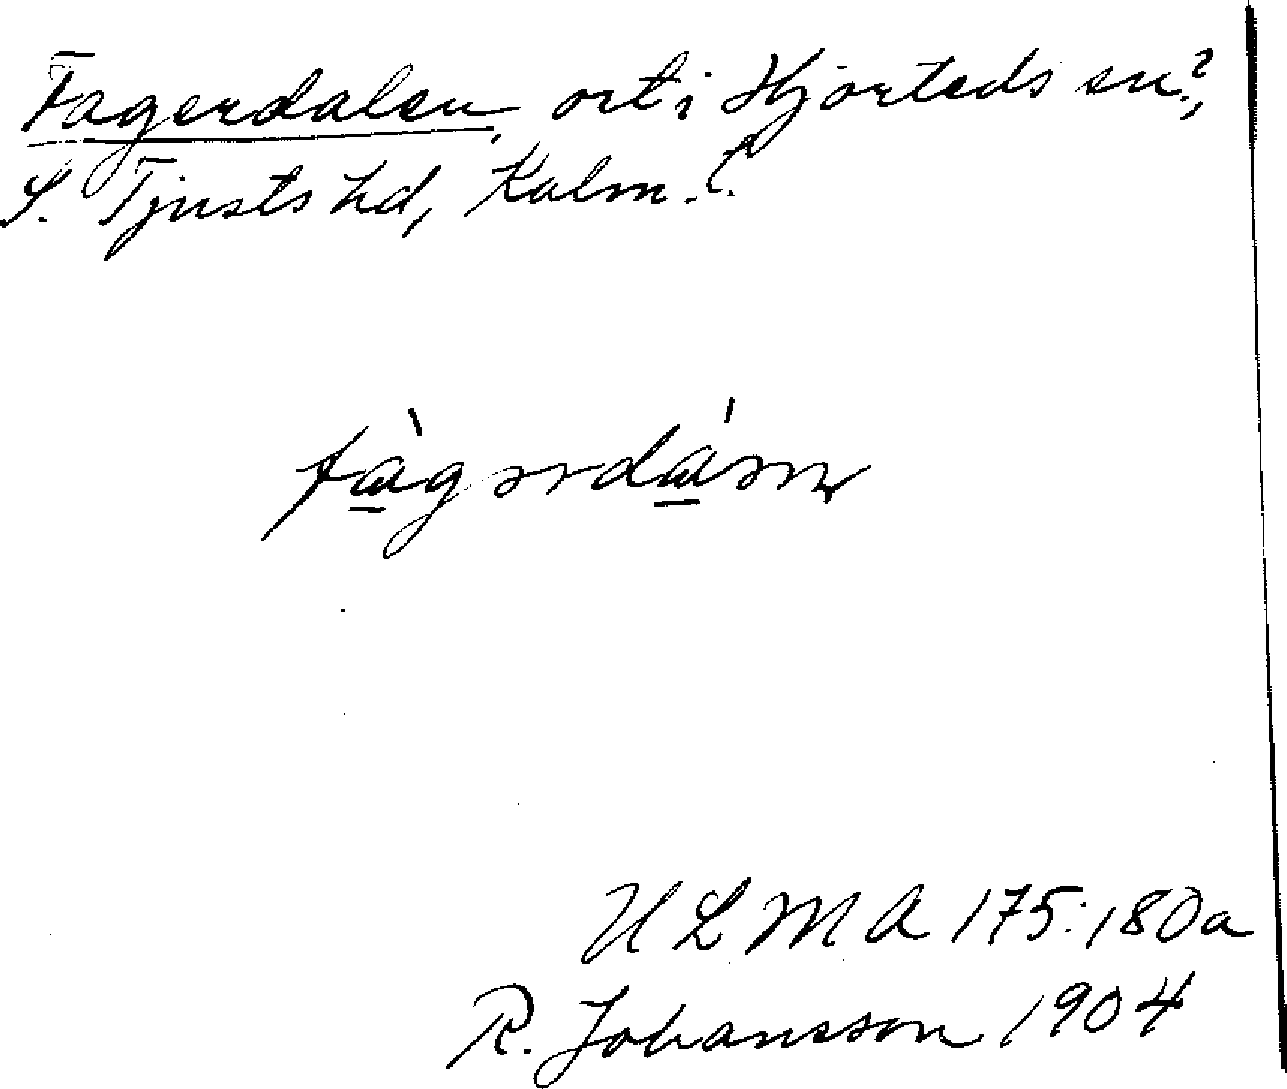 Fagerdalen, ort i Hjorteds sn?,
S. Tjusts hd, Kalm. l.
fàgərdáən
ULMA 175:180a
R. Johansson 1904